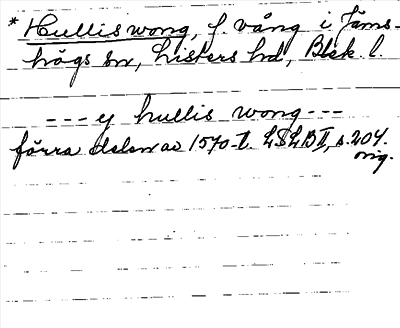 * Hullis wong, f. vång i Jäms-
högs sn, Listers hd, Blek. l.
--- y hullis wong ---
förra delen av 1570-t. LSLB II, s. 204.
orig.